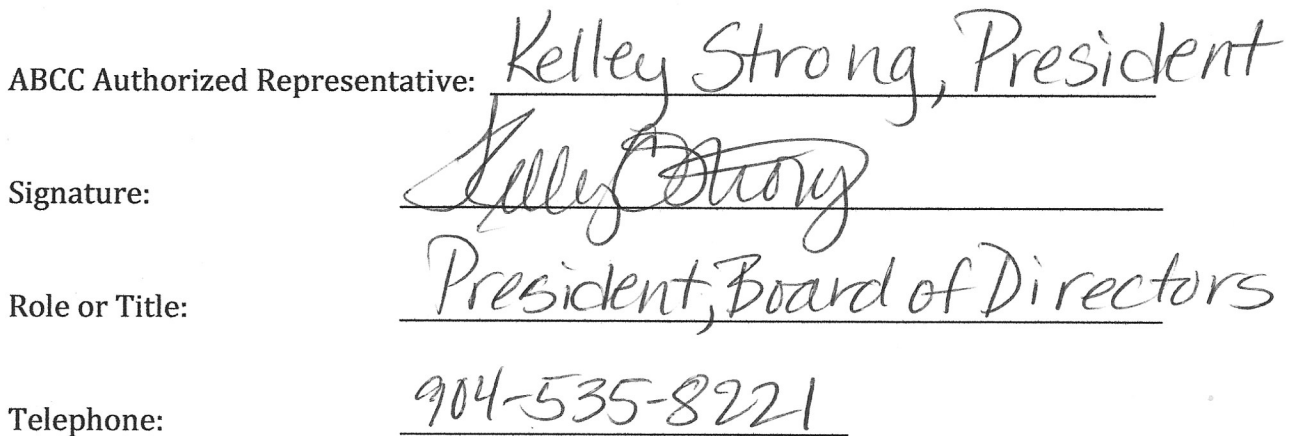 ABCC Authorized Representative: Kelley Strong, President
Signature: Kelley Strong
Role or Title: President, Board of Directors
Telephone: 904-535-8221